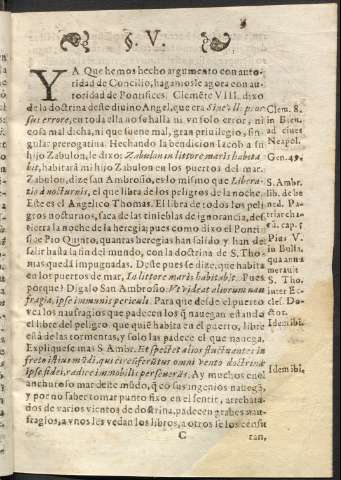 §. V.
YA Que hemos hecho argumento con auto-
ridad de Concilio, hagamosle agora con au-
toridad de Pontifices. Clemẽte VIII. dixo
de la doctrina deste diuino Angel, que era Sine vllo pror
sus errore, en toda ella no se halla ni vn solo error, ni
cosa mal dicha, ni que suene mal, gran priuilegio, sin-
gular prerogatiua. Hechando la bendicion Iacob a su
hijo Zabulon, le dixo: Zabulon in littore maris habita
bit, habitarà mi hijo Zabulon en los puertos del mar.
Zabulon, dize san Ambrosio, es lo mismo que Libera-
tio à nocturnis, el que libra de los peligros de la noche.
Este es el Angelico Thomas. El libra de todos los peli
gros nocturnos, saca de las tinieblas de ignorancia, des
tierra la noche de la heregia; pues como dixo el Ponti
fice Pio Quinto, quantas heregias han salido y han de
salir hasta la fin del mundo, con la doctrina de S. Tho-
mas quedã impugnadas. Deste pues se dize, que habita
en los puertos de mar, In littore maris habitabit. Pues
porque? Digalo San Ambrosio: Vt videat aliorum nau-
fragia, ipse immunis periculi. Para que desde el puerto
vea los naufragios que padecen los q̃ nauegan estando
el libre del peligro que quiẽ habita en el puerto, libre
està de las tormentas, y solo las padece el que nauega.
Expliquese mas S. Ambr. Et spectet alios fluctuantes in
freto istius mũdi, qui circũferũtur omni vento doctrinæ
ipse fidei, radice immobilis perseuerãs. Ay muchos en el
anchuroso mar deste mũdo, q̃ cõ sus ingenios nauegã,
y por no saber tomar punto fixo en el sentir, arrebata-
dos de varios vientos de doctrina, padecen graues nau-
fragios, a vnos les vedan los libros, a otros se los censu
C
ran,
Clem. 8.
in Breu.
ad ciues
Neapol.
Gen. 49.
S. Ambr.
lib. de be
ned. Pa-
triarcha-
rũ. cap. 5
Pius V.
in Bulla
qua anu
merauit
S. Tho.
inter Ec-
cles. Do-
ctor.
Idem ibi.
Idem ibi.